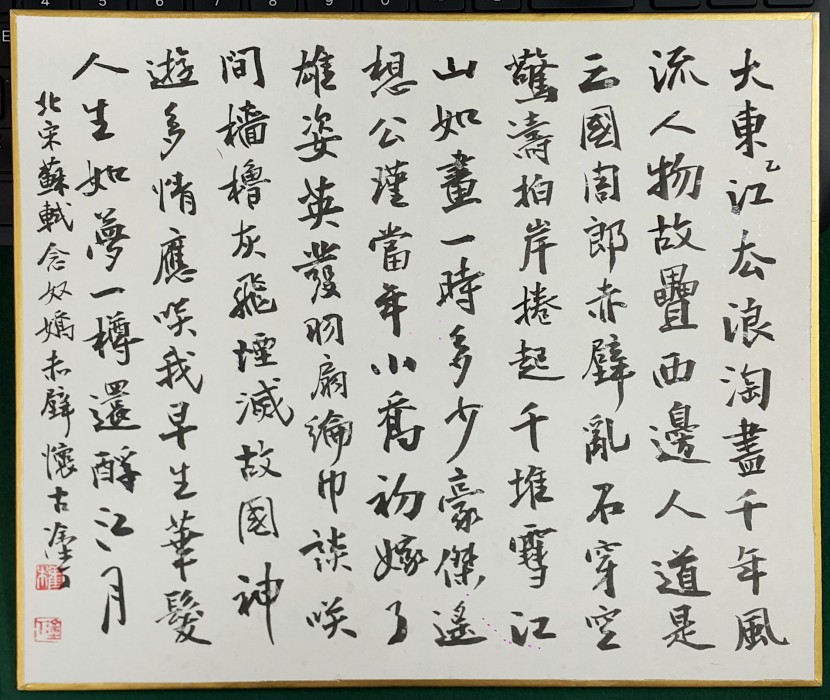 大東乙江去浪淘盡千年風
流人物故疊西邊人道是
三國周郎赤壁亂石穿空
驚濤拍岸捲起千堆雪江
山如畫一時多少豪傑遙
想公瑾當年小喬初嫁了
雄姿英發羽扇綸巾談咲
間檣櫓灰飛煙滅故國神
遊多情應咲我早生華髮
人生如夢一樽還酹江月
北宋蘇軾念奴嬌赤壁懷古